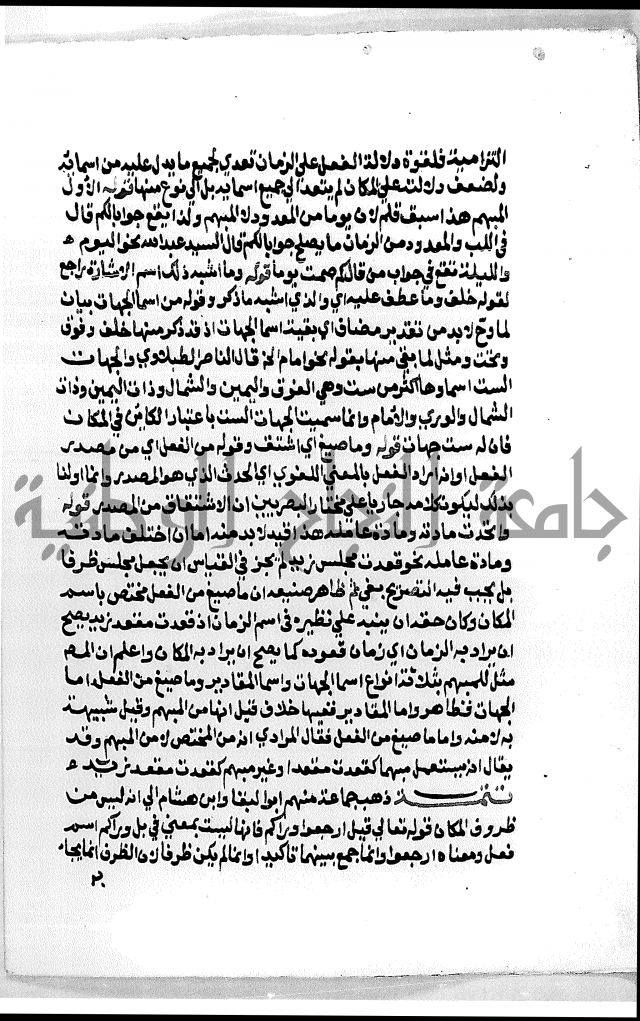 التزامية فلقوة دلالة الفعل على الزمان تعدي لجميع ما يدل عليه من اسمائه
ولضعف دلالته على المكان لم يتعد الى جميع اسمائه بل الى نوع منها قوله الاول
المبهم هذا سبق قلم لان يوما من المعدود لا المبهم ولذا يقع جوابا لكم قال
في اللب والمعدود من الزمان ما يصلح جوابا لكم قال السيد عبد الله نحو اليوم
والليلة تقع في جواب من قال كم صمت يوما قوله وما اشبه ذلك اسم الاشارة راجع
لقوله خلف وما عطف عليه اي والذي اشبه ما ذكر وقوله من اسما الجهات بيان
لما وح لابد من تقدير مضاف اي بقية اسما الجهات اذ قد ذكر منها خلف وفوق
وتحت ومثل لما بقي منها بقوله نحو امام الخ قال الناصر الطبلاوي والجهات
الست اسماوها اكثر من ست وهي الفوق واليمين والشمال وذات اليمين وذات
الشمال والوري والامام وانما سميت الجهات الست باعتبار الكاين في المكان
فان له ست جهات قوله وما صيغ اي اشتق وقوله من الفعل اي من مصدر
الفعل او انه اراد الفعل بالمعني اللغوي اي الحدث الذي هو المصدر وانما اولنا
بذلك ليكون كلامه جاريا على مختار البصريين ان الاشتقاق من المصدر قوله
واتحدت مادته ومادة عامله هذا قيد لا بد منه اما ان اختلف مادته
ومادة عامله نحو قعدت مجلس زيد لم يجز في القياس ان يجعل مجلس ظرفا
بل يجب فيه التصريح بفي ثم ظاهر صنيعه ان ما صيغ من الفعل مختص باسم
المكان وكان حقه ان ينبه على نظيره في اسم الزمان اذ قعدت مقعد زيد يصح
ان يراد به الزمان اي زمان قعوده كما يصح ان يراد به المكان واعلم ان المص
مثل للمبهم بثلاثة انواع اسما الجهات واسما المقادير وما صيغ من الفعل اما
الجهات فظاهر واما المقادير ففيها خلاف قيل انها من المبهم وقيل شبيهة
به لا منه واما ما صيغ من الفعل فقال المرادي انه من المختص لا من المبهم وقد
يقال انه يستعمل مبهما كقعدت مقعدا وغير مبهم كقعدت مقعد زيد
تتمة ذهب جماعة منهم ابو البقا وابن هشام الى انه ليس من
ظروف المكان قوله تعالي قيل ارجعوا وراكم فانها ليست بمعني في بل وراكم اسم
فعل ومعناه ارجعوا وانما جمع بينهما تاكيدا وانما لم يكن ظرفا لان الظرف انما يجاء
جامعة النجاح الوطنية